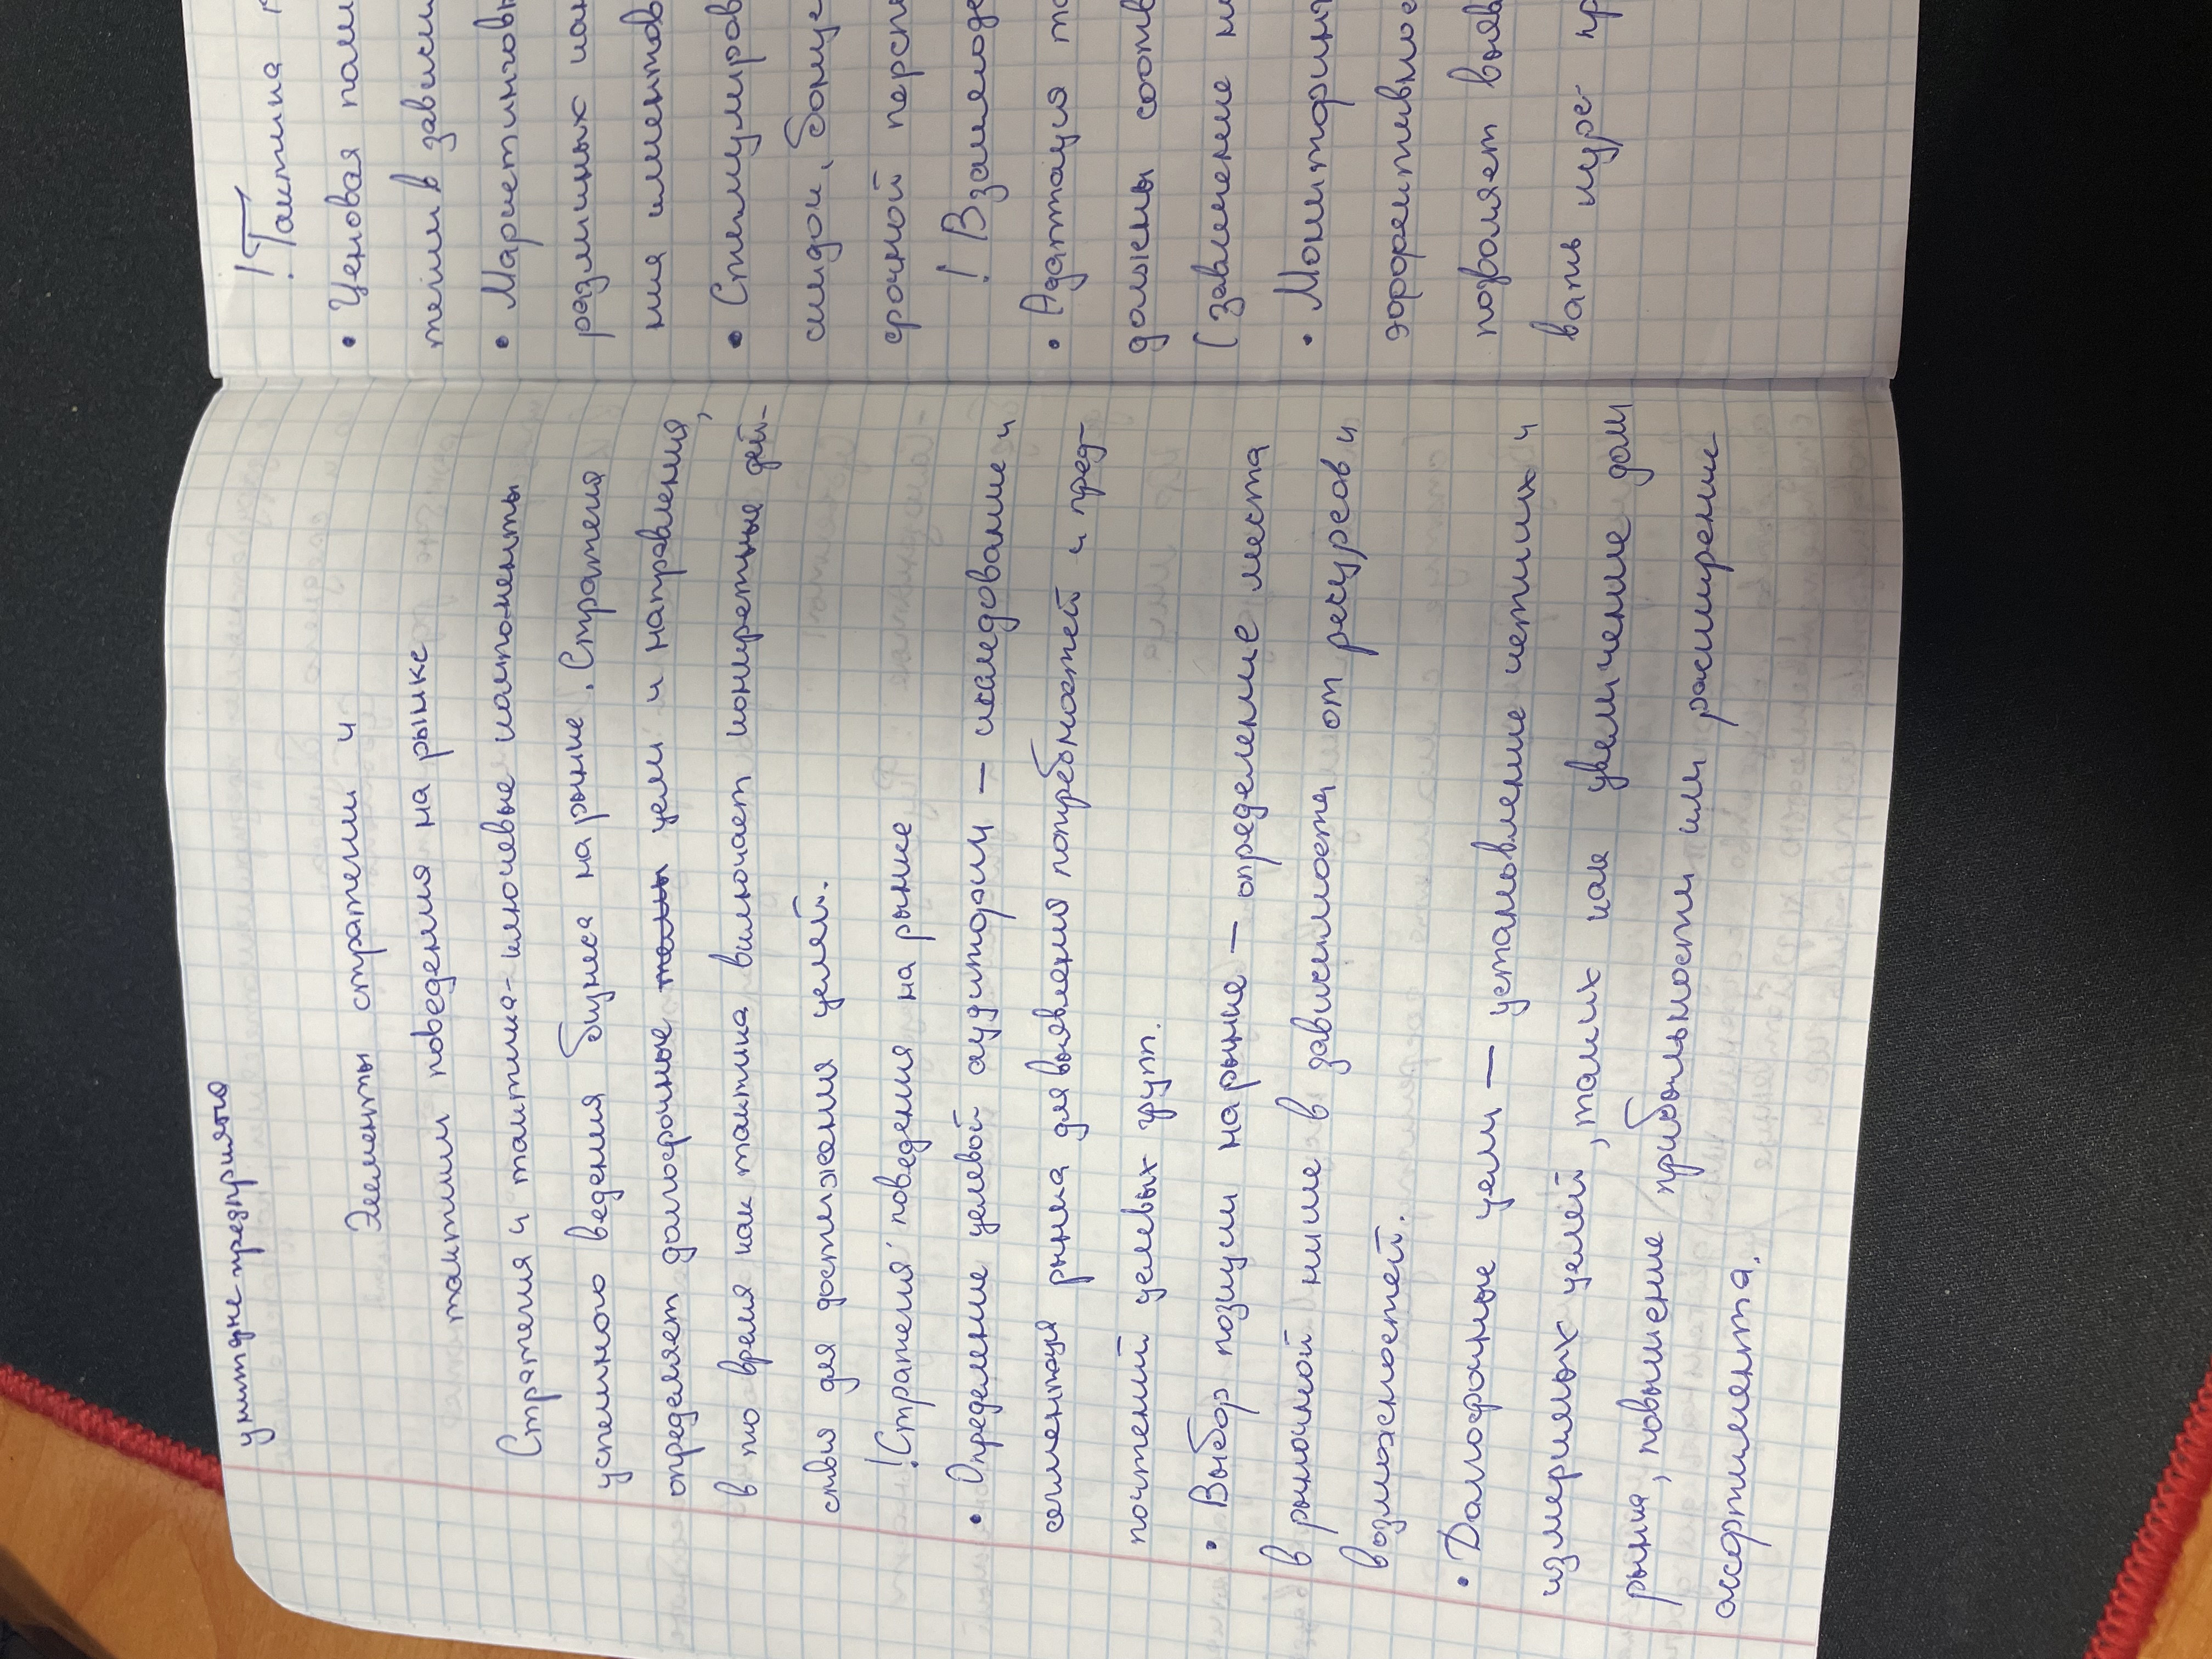 унитарне предприятие
Элементы стратегии и
тактики поведения на рынке
Стратегия и тактика-ключевые компоненты
успешного ведения бизнеса на рынке. Стратегия
определяет долгосрочные цели и направления,
в то время как тактика включает конкретные дей-
ствия для достижения целей.
! Стратегия поведения на рынке
• Определение целевой аудитории — исследование и
сегментация рынка для выявлено потребностей и пред-
почтений целевых групп.
• Выбор позиции на рынке — определение места
в рыночной нише в зависимости от ресурсов и
возможностей.
• Долгосрочные цели — установление четких и
измеримых целей, таких как увеличение доли
рынка, повышение прибыльности или расширение
ассортимента.
! Тактика
• Ценовая поли
тели в зависи
• Маркетингов
различных кан
ния клиентов
• Стимулиров
скидки, бонусе
срочной перспе
! Взаимоде
• Адаптация та
должны соотв
( завление
• Мониторинг
эффективнос
позволяет выяв
вать курс- пр